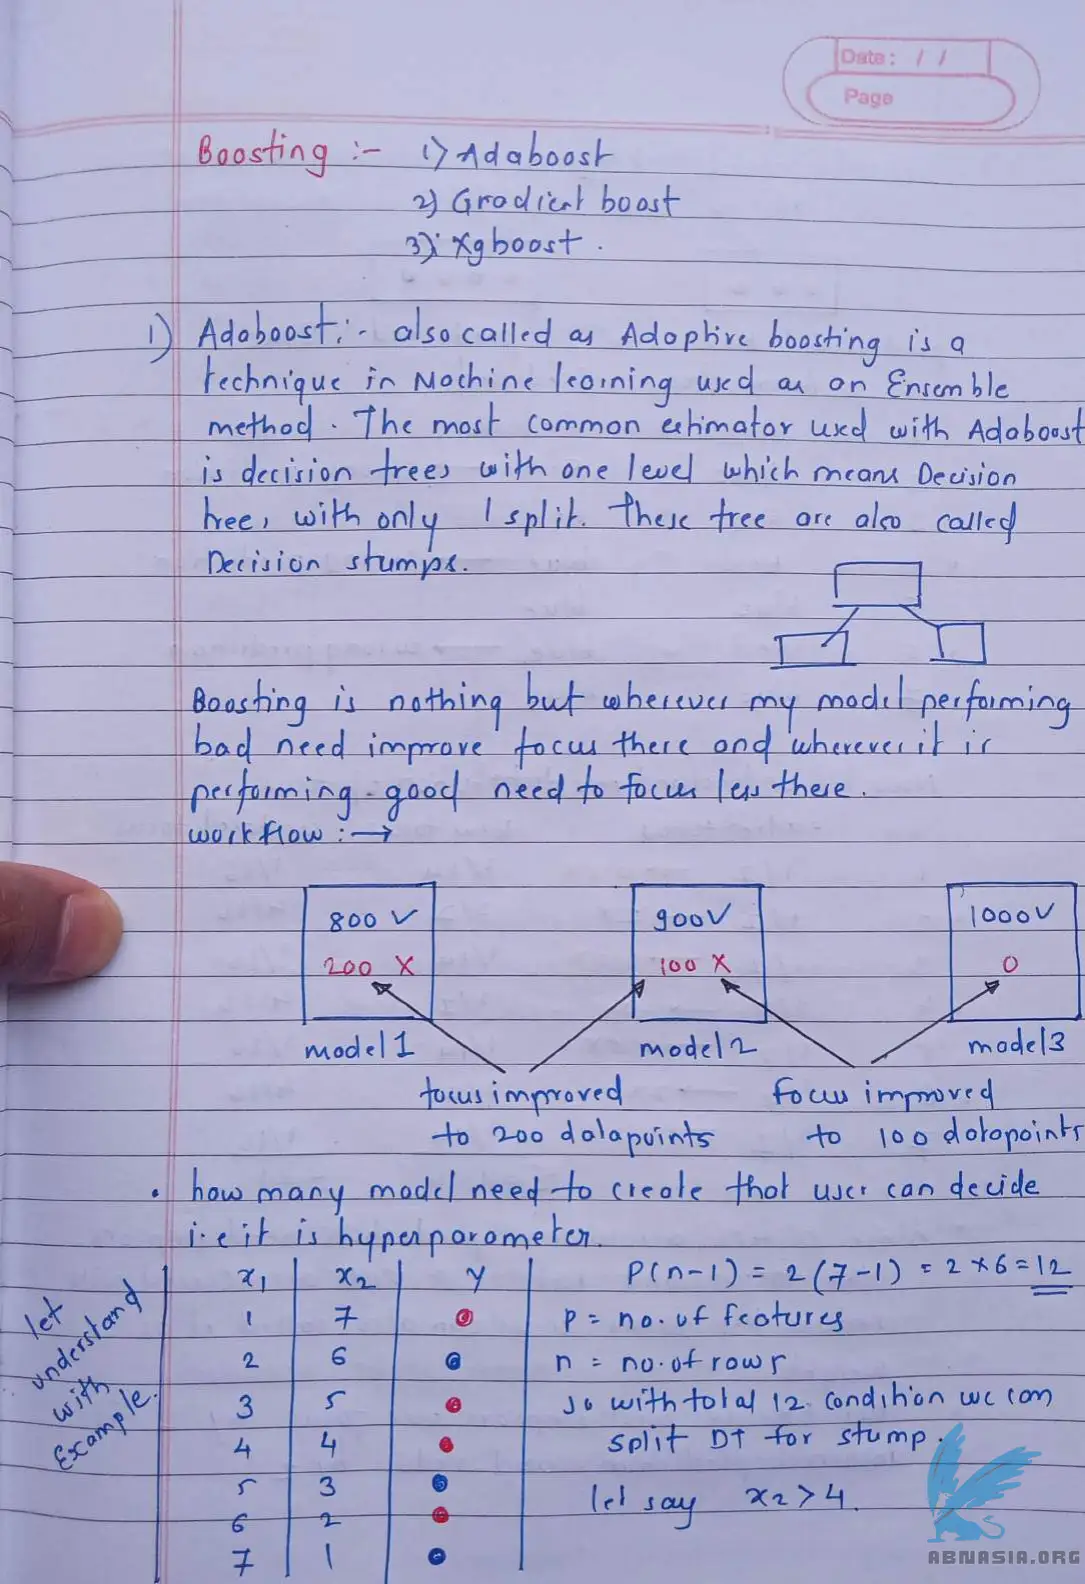 Date : / /
Page
Boosting :- 1) Adaboost
2) Gradient boost
3) Xgboost .
1) Adaboost :- also called as Adaptive boosting is a
technique in Machine learning used as an Ensemble
method . The most common estimator used with Adaboost
is decision trees with one level which means Decision
trees with only 1 split. These tree are also called
Decision stumps.
Boosting is nothing but wherever my model performing
bad need improve focus there and wherever it is
performing good need to focus less there .
workflow : →
800 ✓ 900 ✓ 1000 ✓
200 X 100 X 0
model 1 model 2 model 3
focus improved focus improved
to 200 datapoints to 100 datapoints
• how many model need to create that user can decide
i.e it is hyperparameter.
let understand with Example.
x₁ x₂ y P(n-1) = 2(7-1) = 2 × 6 = 12
1 7 p = no. of features
2 6 n = no. of rows
3 5 so with total 12 condition we can
4 4 split DT for stump .
5 3 let say x₂ > 4.
6 2
7 1
ABNASIA.ORG